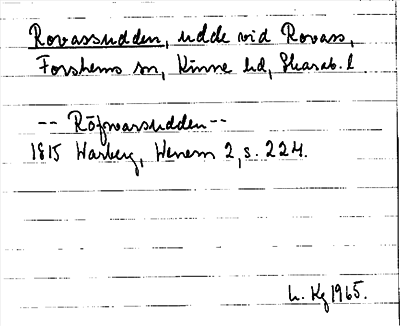 Rovassudden, udde vid Rovass,
Forshems sn, Kinne hd, Skarab. l
-- Röfwarsudden --
1815 Warberg, Wenern 2, s. 224.
L. Kg 1965.